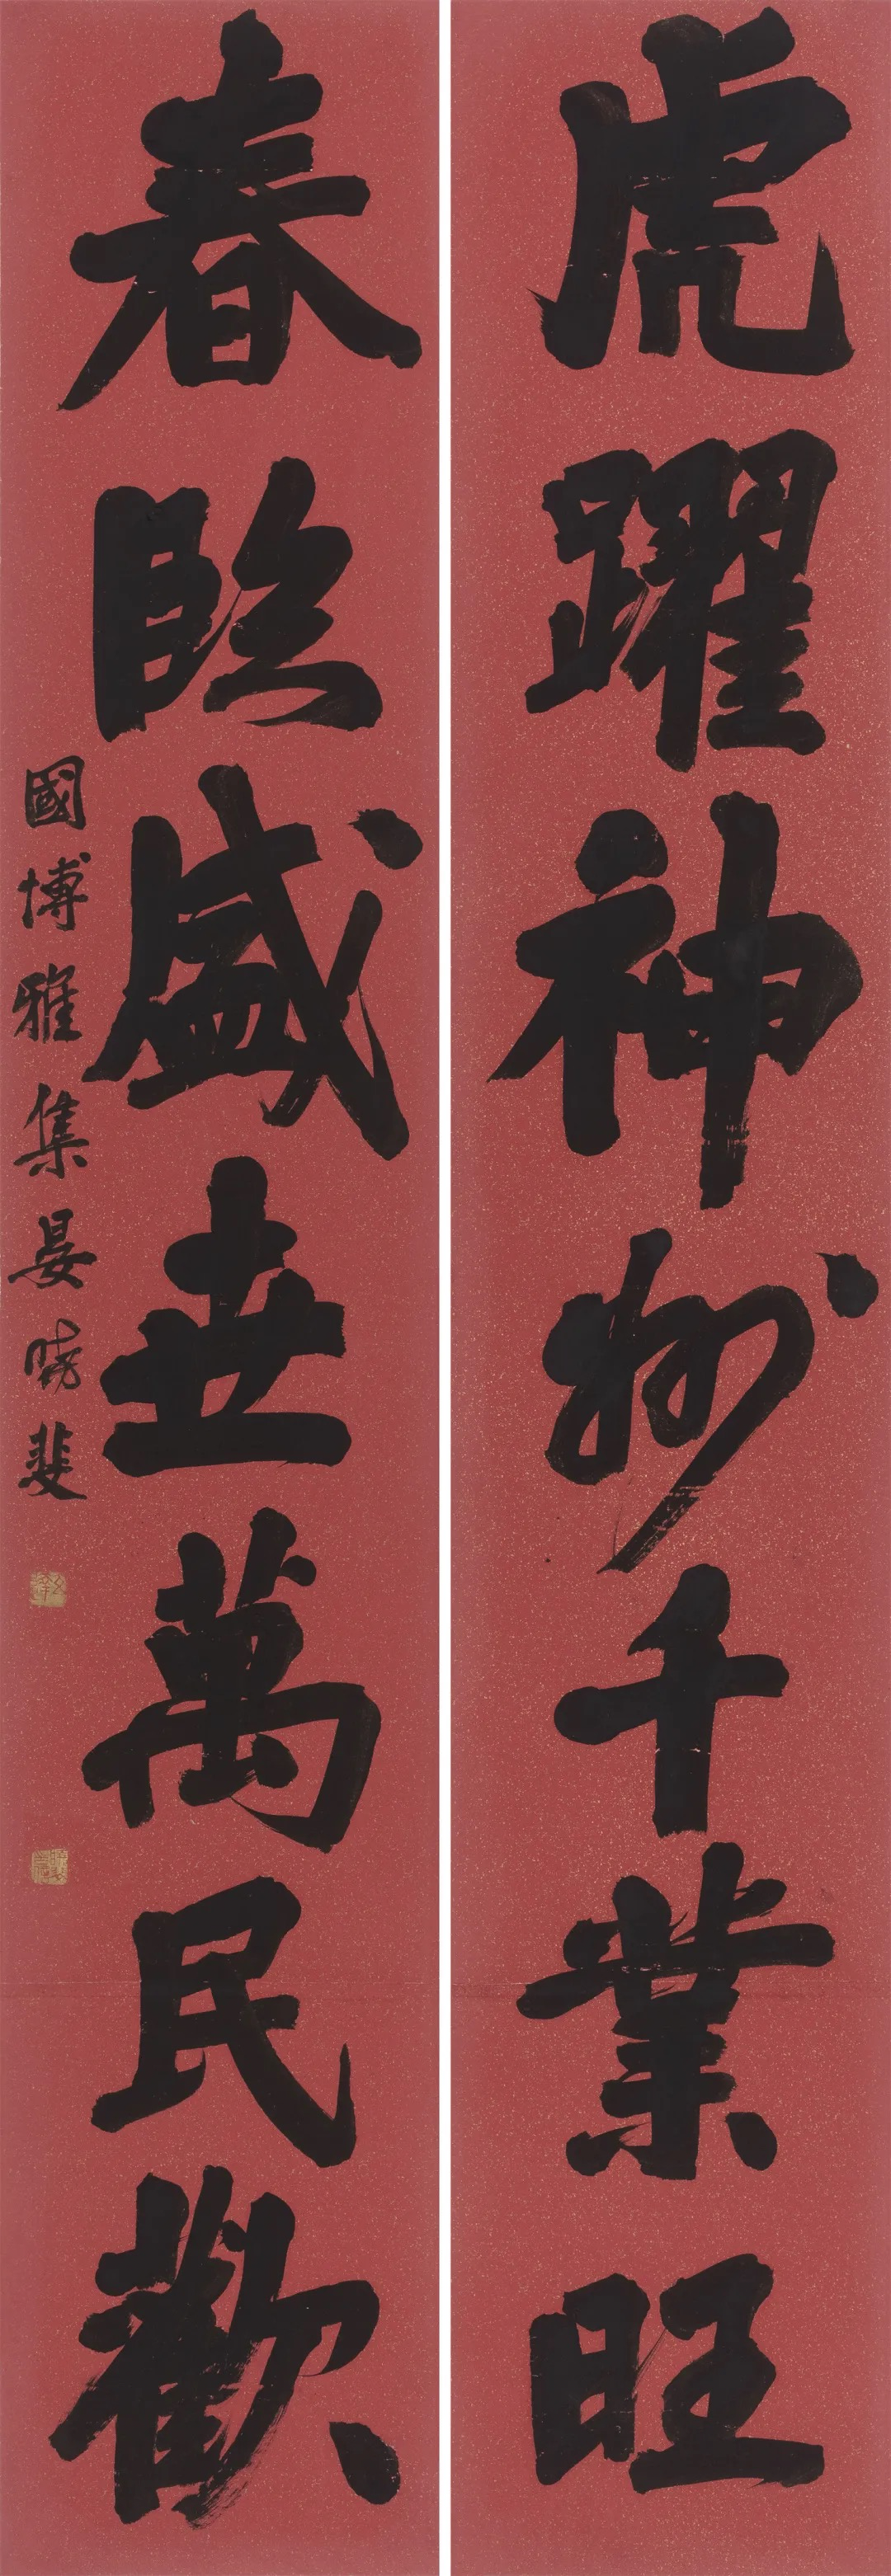 虎躍神州千業旺
春臨盛世萬民歡
國博雅集晏曉斐